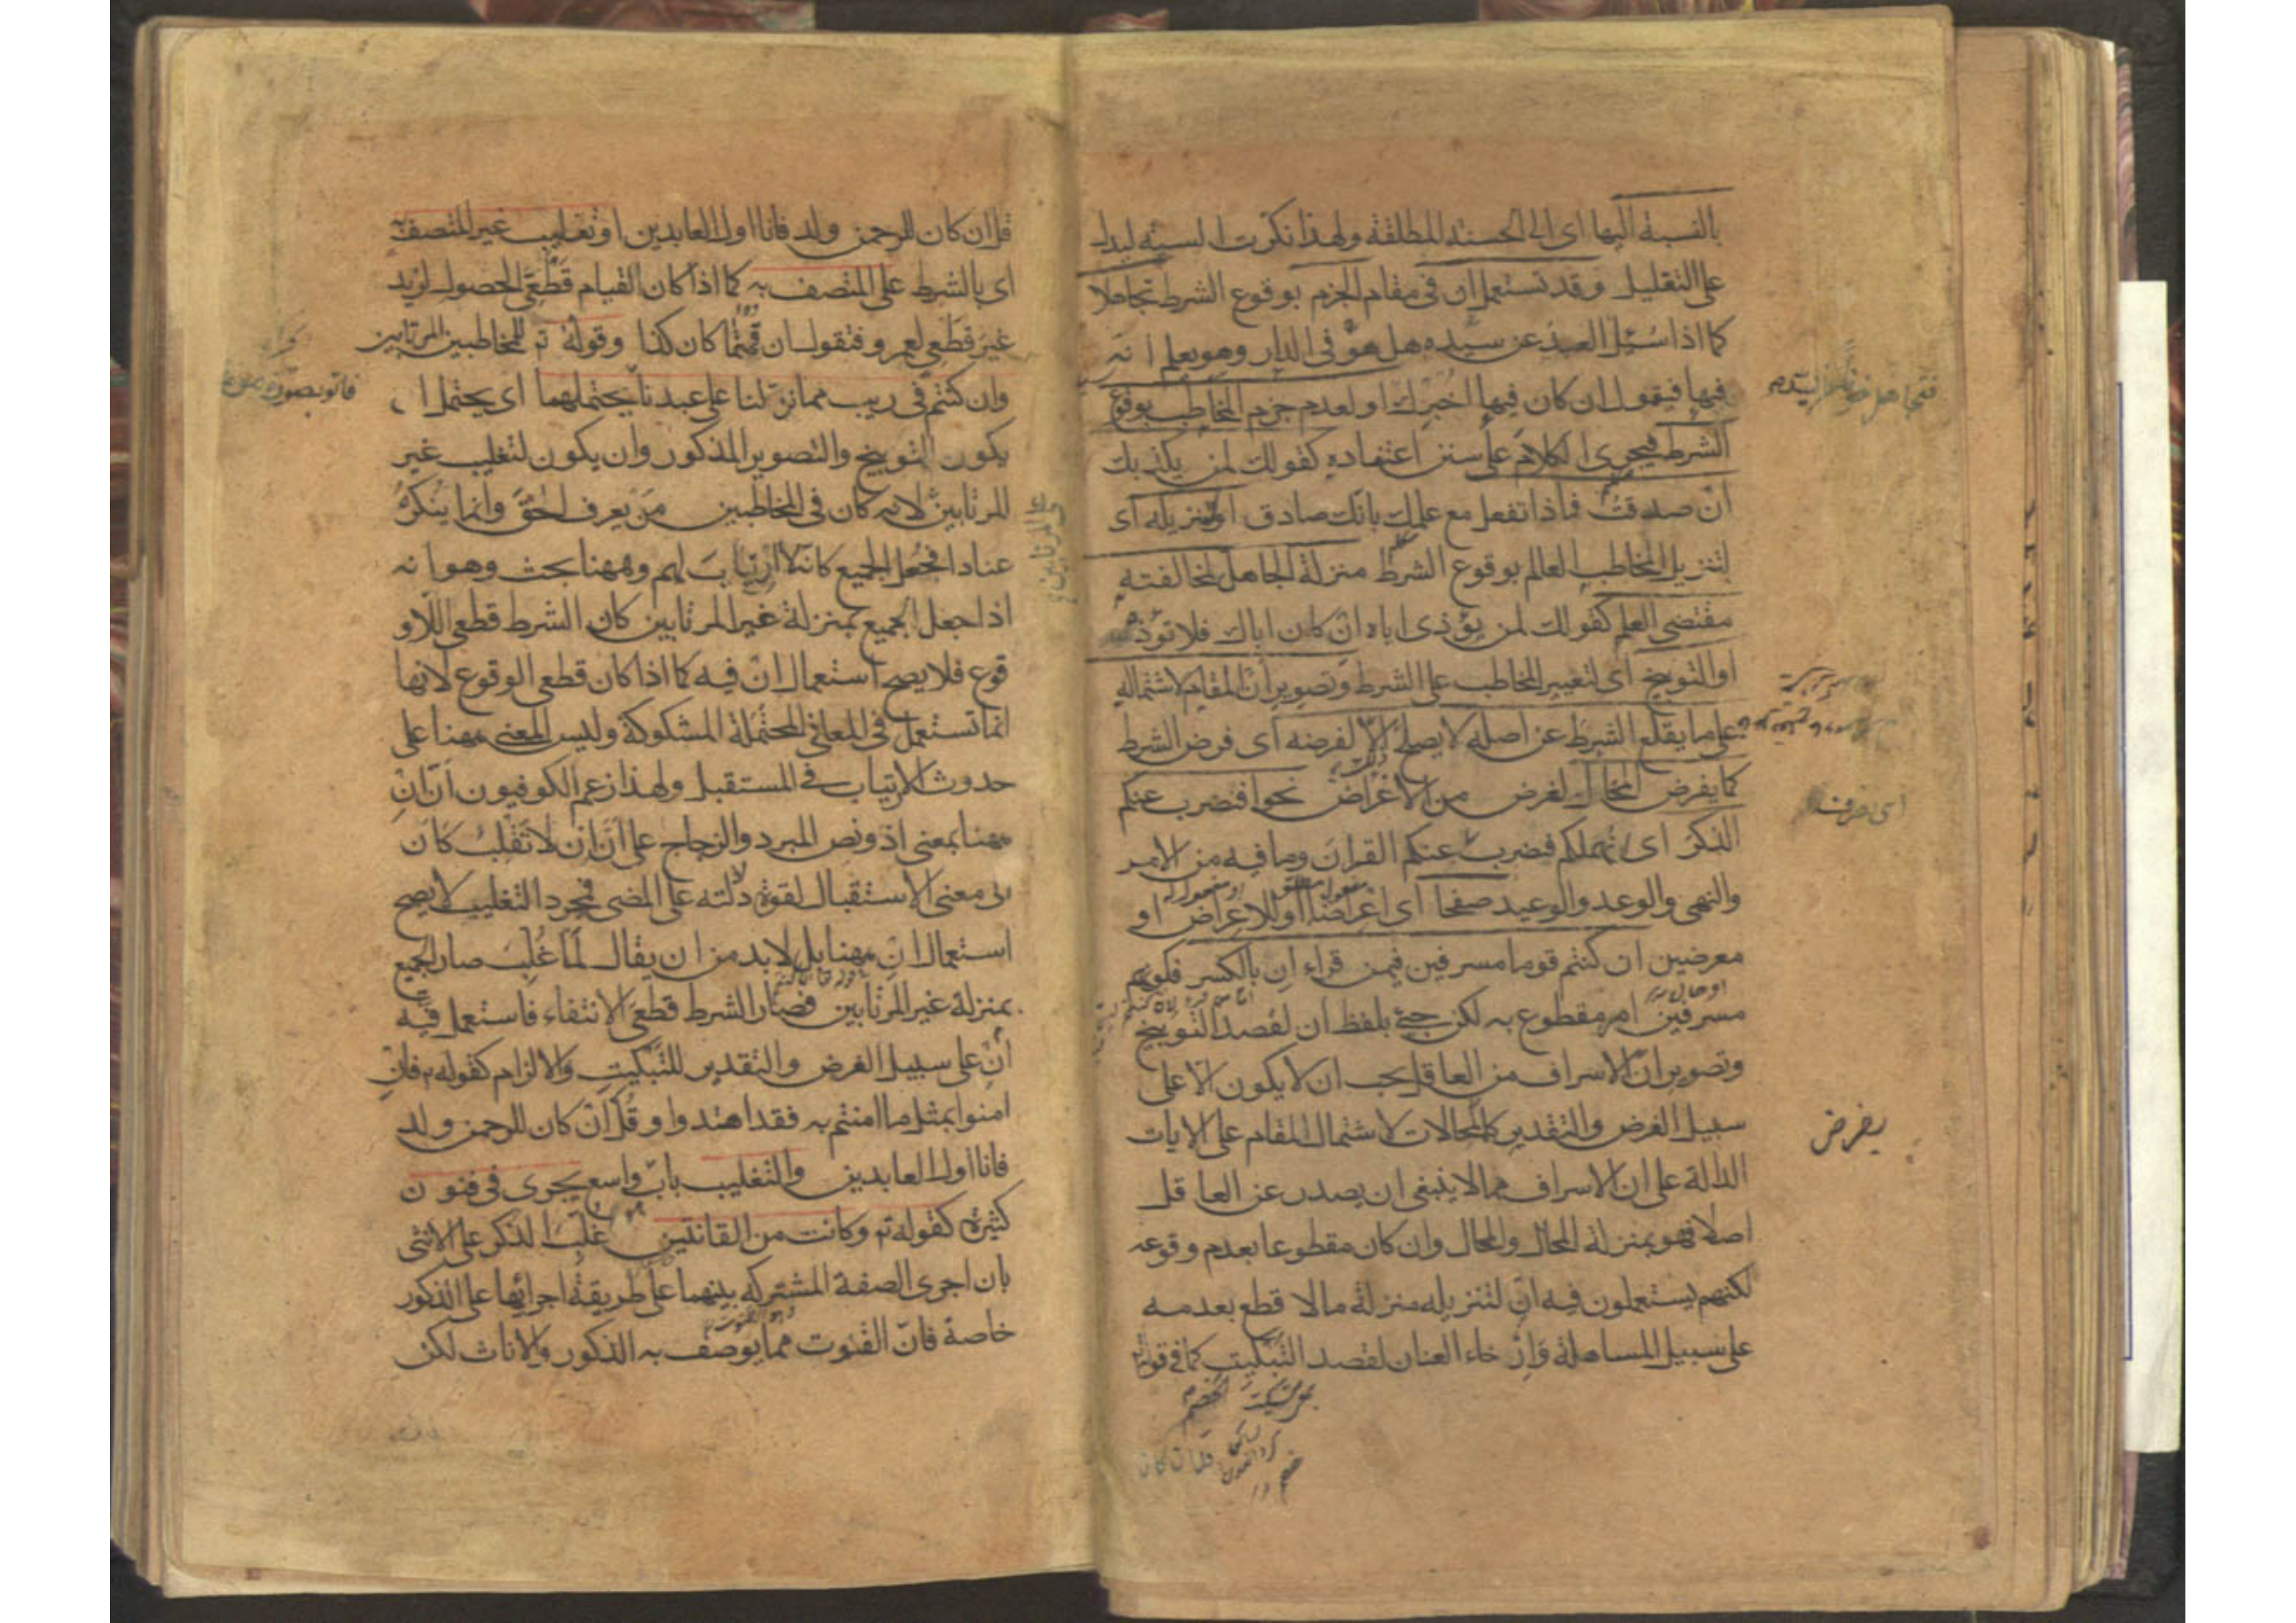 بالنسبة اليها اى الى الحسنة المطلقة ولهذا نكرت السيئة ليدل
على التقليل وقد تستعمل ان فى مقام الجزم بوقوع الشرط تجاهلا
كما اذا سئل العبد عن سيده هل هو فى الدار وهو يعلم انه
فيها فيقول ان كان فيها اخبرك او لعدم جزم المخاطب بوقوع
الشرط فيجرى الكلام على سنن اعتقاده كقولك لمن يكذبك
ان صدقت فماذا تفعل مع علمك بانك صادق او تنزيله اى
لتنزيل المخاطب العالم بوقوع الشرط منزلة الجاهل لمخالفته
مقتضى العلم كقولك لمن يؤذى اباه ان كان اباك فلا تؤذه
او التوبيخ اى لتعيير المخاطب على الشرط وتصوير ان المقام لاشتماله
على ما يقلع الشرط عن اصله لا يصلح الا لفرضه اى فرض الشرط
كما يفرض المحال لغرض من الاغراض نحو افنضرب عنكم
الذكر اى انهملكم فنضرب عنكم القران وما فيه من الامر
والنهى والوعد والوعيد صفحا اى اعراضا او للاعراض او
معرضين ان كنتم قوما مسرفين فيمن قراء ان بالكسر فكونهم
مسرفين امر مقطوع به لكن جئ بلفظ ان لقصد التوبيخ
وتصوير ان الاسراف من العاقل يجب ان لا يكون الا على
سبيل الفرض والتقدير كالمحالات لاشتمال المقام على الايات
الدالة على ان الاسراف مما لا ينبغى ان يصدر عن العاقل
اصلا فهو بمنزلة المحال والمحال وان كان مقطوعا بعدم وقوعه
لكنهم يستعملون فيه ان لتنزيله منزلة ما لا قطع بعدمه
على سبيل المساهلة وارخاء العنان لقصد التبكيت كما فى قوله
اى صرفت
يفرض
مفعول مطلق
او مفعول له
او حال
قل ان كان
قل ان كان للرحمن ولد فانا اول العابدين او تغليب غير المتصف به
اى بالشرط على المتصف به كما اذا كان القيام قطعى الحصول لزيد
غير قطعى لعمرو فتقول ان قمتما كان كذا وقوله تع للمخاطبين المرتابين
وان كنتم فى ريب مما نزلنا على عبدنا يحتملهما اى يحتمل ا ن
يكون التوبيخ والتصوير المذكور وان يكون لتغليب غير
المرتابين لانه كان فى المخاطبين من يعرف الحق وانما ينكره
عنادا فجعل الجميع كانه لا ارتياب لهم وههنا بحث وهو انه
اذا جعل الجميع بمنزلة غير المرتابين كان الشرط قطعى اللاو
قوع فلا يصح استعمال ان فيه كما اذا كان قطعى الوقوع لانها
انما تستعمل فى المعانى المحتملة المشكوكة وليس المعنى ههنا على
حدوث الارتياب فى المستقبل ولهذا زعم الكوفيون ان ان
ههنا بمعنى اذ ونص المبرد والزجاج على ان ان لا تقلب كان
الى معنى الاستقبال لقوة دلالته على المضى فمجرد التغليب لا يصح
استعمال ان ههنا بل لا بد من ان يقال لما غلب صار الجميع
بمنزلة غير المرتابين فصار الشرط قطعى الانتفاء فاستعمل فيه
ان على سبيل الفرض والتقدير للتبكيت والالزام كقوله تع فان
امنوا بمثل ما امنتم به فقد اهتدوا وقل ان كان للرحمن ولد
فانا اول العابدين والتغليب باب واسع يجرى فى فنون
كثيرة كقوله تع وكانت من القانتين غلب الذكر على الانثى
بان اجرى الصفة المشتركة بينهما على طريقة اجرائها على الذكور
خاصة فان القنوت مما يوصف به الذكور والاناث لكن
على المرتابين